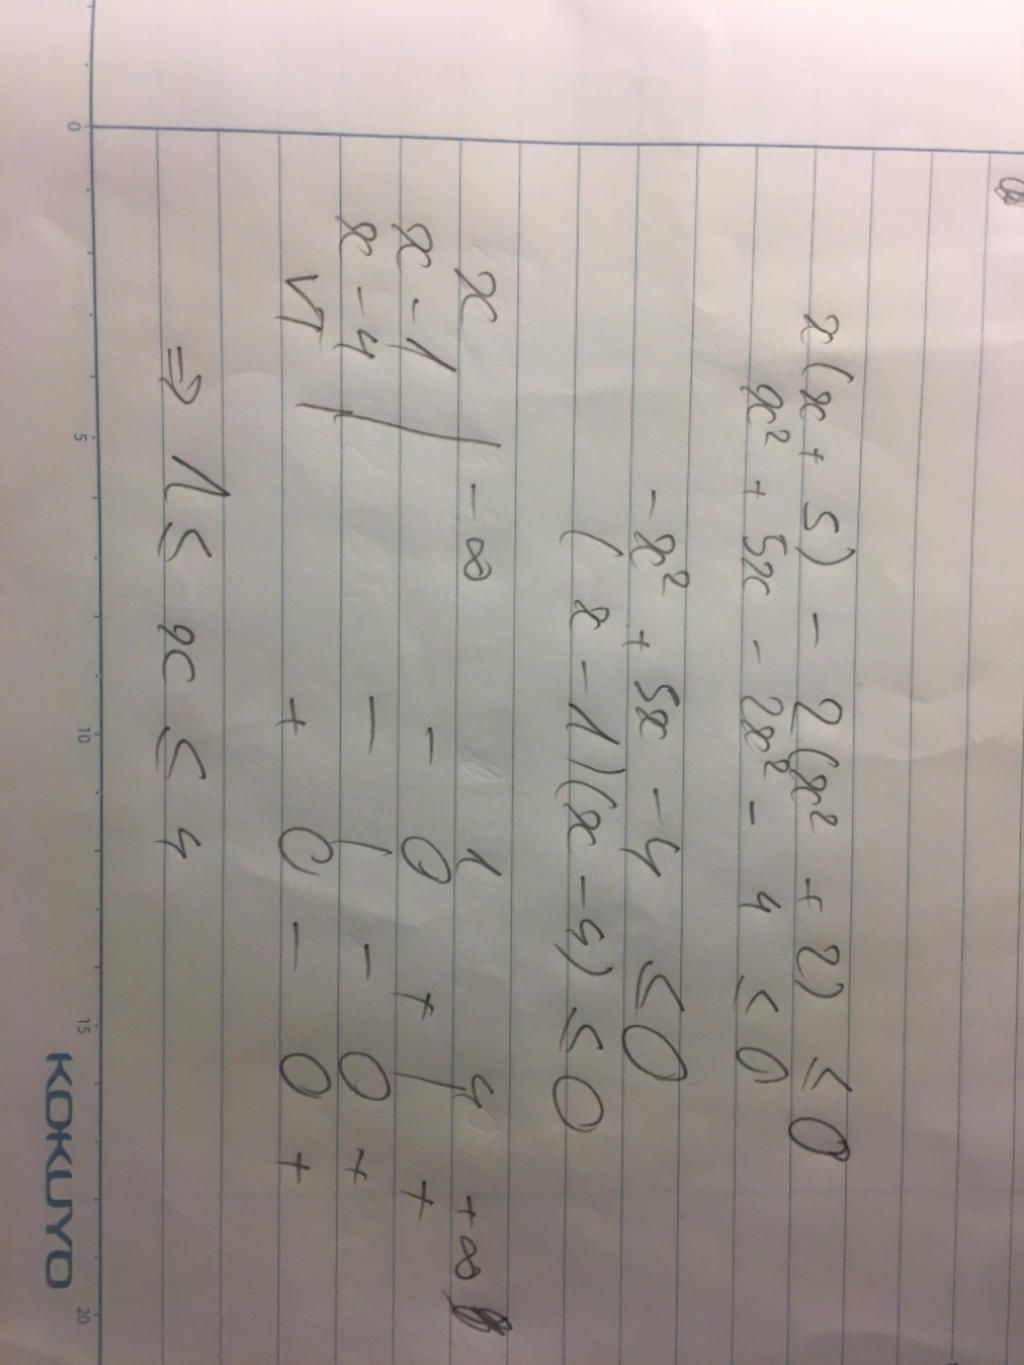 x(x + 5) - 2(x² + 2) ≤ 0
x² + 5x - 2x² - 4 ≤ 0
-x² + 5x - 4 ≤ 0
(x - 1)(x - 4) ≤ 0
x | -∞ 1 4 +∞
x - 1 | - 0 + | +
x - 4 | - | - 0 +
VT | + 0 - 0 +
⇒ 1 ≤ x ≤ 4
0 5 10 15 20
KOKUYO